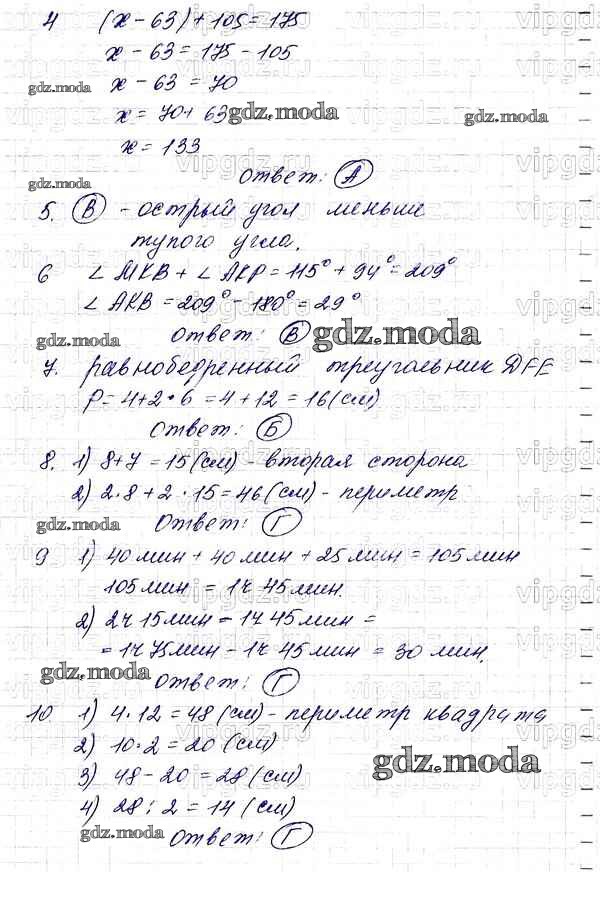 4 (x - 63) + 105 = 175
x - 63 = 175 - 105
x - 63 = 70
gdz.moda
x = 70 + 63 gdz.moda gdz.moda
x = 133
ответ: А
gdz.moda
5. В - острый угол меньше
тупого угла.
6 ∠ МКВ + ∠ АКР = 115° + 94° = 209°
∠ АКВ = 209° - 180° = 29°
ответ: В gdz.moda
7. равнобедренный треугольник DFE
P = 4 + 2 · 6 = 4 + 12 = 16 (см)
ответ: Б
8. 1) 8 + 7 = 15 (см) - вторая сторона
2) 2 · 8 + 2 · 15 = 46 (см) - периметр
gdz.moda ответ: Г gdz.moda
9 1) 40 мин + 40 мин + 25 мин = 105 мин
105 мин = 1ч 45 мин.
2) 2ч 15 мин - 1ч 45 мин =
= 1ч 75 мин - 1ч 45 мин = 30 мин.
gdz.moda
ответ: Г
10 1) 4 · 12 = 48 (см) - периметр квадрата
2) 10 · 2 = 20 (см)
gdz.moda
3) 48 - 20 = 28 (см)
4) 28 : 2 = 14 (см)
gdz.moda ответ: Г